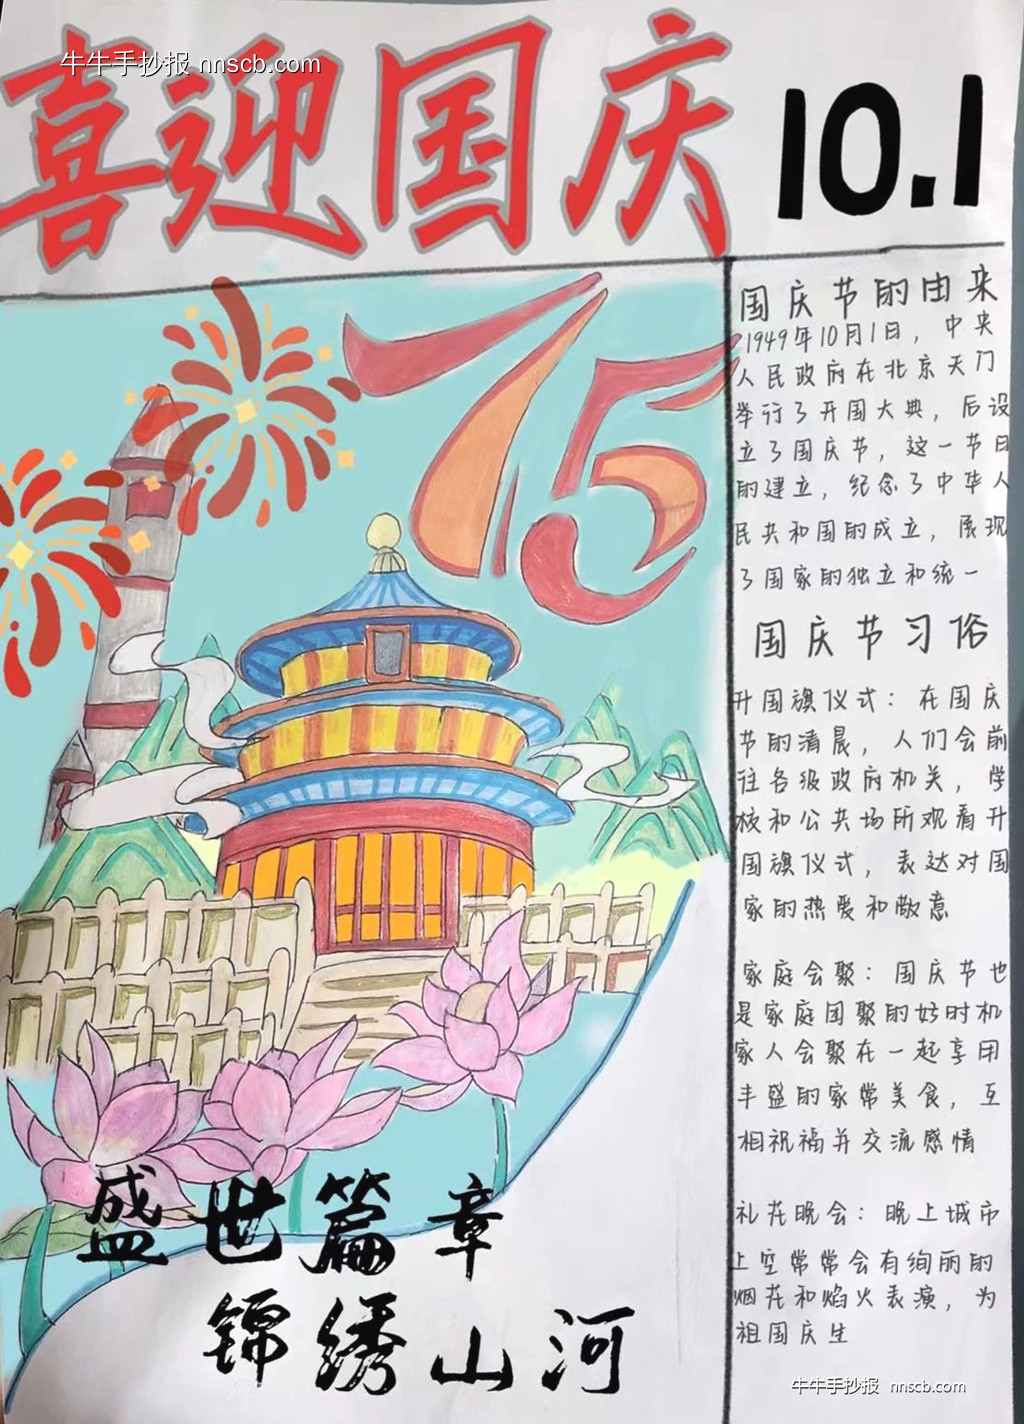 牛牛手抄报 nnscb.com
喜迎国庆 10.1
75
国庆节的由来
1949年10月1日，中央
人民政府在北京天门
举行了开国大典，后设
立了国庆节，这一节日
的建立，纪念了中华人
民共和国的成立，展现
了国家的独立和统一
国庆节习俗
升国旗仪式：在国庆
节的清晨，人们会前
往各级政府机关，学
校和公共场所观看升
国旗仪式，表达对国
家的热爱和敬意
家庭会聚：国庆节也
是家庭团聚的好时机
家人会聚在一起享用
丰盛的家常美食，互
相祝福并交流感情
礼花晚会：晚上城市
上空常常会有绚丽的
烟花和焰火表演，为
祖国庆生
盛世篇章
锦绣山河
牛牛手抄报 nnscb.com